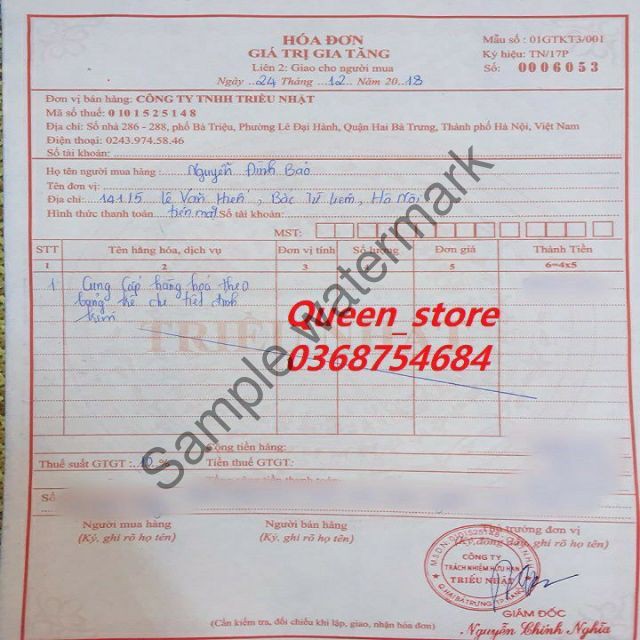 HÓA ĐƠN
GIÁ TRỊ GIA TĂNG
Liên 2: Giao cho người mua
Ngày 24 Tháng 12 Năm 2018
Mẫu số : 01GTKT3/001
Ký hiệu: TN/17P
Số: 0006053
Đơn vị bán hàng: CÔNG TY TNHH TRIỀU NHẬT
Mã số thuế: 0101525148
Địa chỉ: Số nhà 286 - 288, phố Bà Triệu, Phường Lê Đại Hành, Quận Hai Bà Trưng, Thành phố Hà Nội, Việt Nam
Điện thoại: 0243.974.58.46
Số tài khoản:
Họ tên người mua hàng : Nguyễn Đình Bảo
Tên đơn vị:
Địa chỉ: Lê Văn Hiến, Bắc Từ Liêm, Hà Nội
Hình thức thanh toán tiền mặt Số tài khoản:
MST:
STT Tên hàng hóa, dịch vụ Đơn vị tính Số lượng Đơn giá Thành Tiền
1 2 3 5 6=4x5
1 Cung cấp hàng hoá theo
bảng kê chi tiết đính
kèm
TRIỀU
Queen_store
0368754684
Sample watermark
Cộng tiền hàng:
Thuế suất GTGT: 10 % Tiền thuế GTGT:
Số
Người mua hàng
(Ký, ghi rõ họ tên)
Người bán hàng
(Ký, ghi rõ họ tên)
Thủ trưởng đơn vị
(Ký, đóng dấu, ghi rõ họ tên)
CÔNG TY
TRÁCH NHIỆM HỮU HẠN
TRIỀU NHẬT
GIÁM ĐỐC
Nguyễn Chính Nghĩa
(Cần kiểm tra, đối chiếu khi lập, giao, nhận hóa đơn)